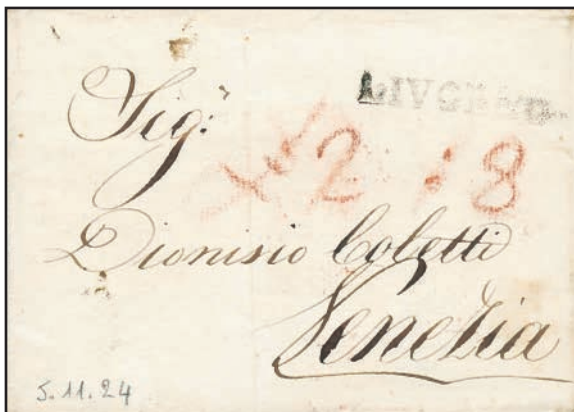 LIVORNO
Sig.r
2 : 8
Dionisio Coletti
Venezia
5.11.24